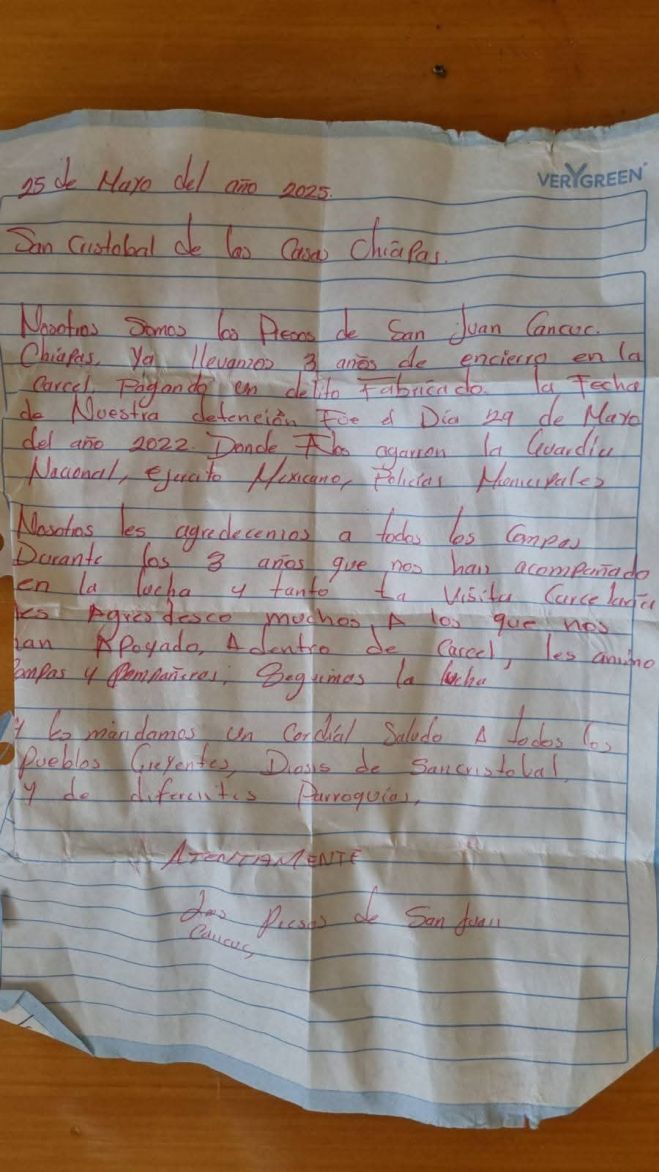 VERYGREEN
25 de Mayo del año 2025.
San Cristobal de las Casas Chiapas.
Nosotros Somos los Presos de San Juan Cancuc.
Chiapas, Ya llevamos 3 años de encierro en la
Carcel, Pagando un delito Fabricado. la Fecha
de Nuestra detención Fue el Día 29 de Mayo
del año 2022. Donde Nos agarron la Guardia
Nacional, ejercito Mexicano, Policias Municipales
Nosotros les agredecemos a todos los Compas
Durante los 3 años que nos han acompañado
en la lucha y tanto la visita Carcelaria
les Agresdesco muchos, A los que nos
han Apoyado, Adentro de Carcel, les animo
Compas y Compañeros, Seguimos la lucha
Y les mandamos un Cordial Saludo A todos los
Pueblos Creyentes, Diosis de Sancristobal,
y de diferentes Parroquias,
ATENTAMENTE
Los Presos de San Juan
Cancuc,